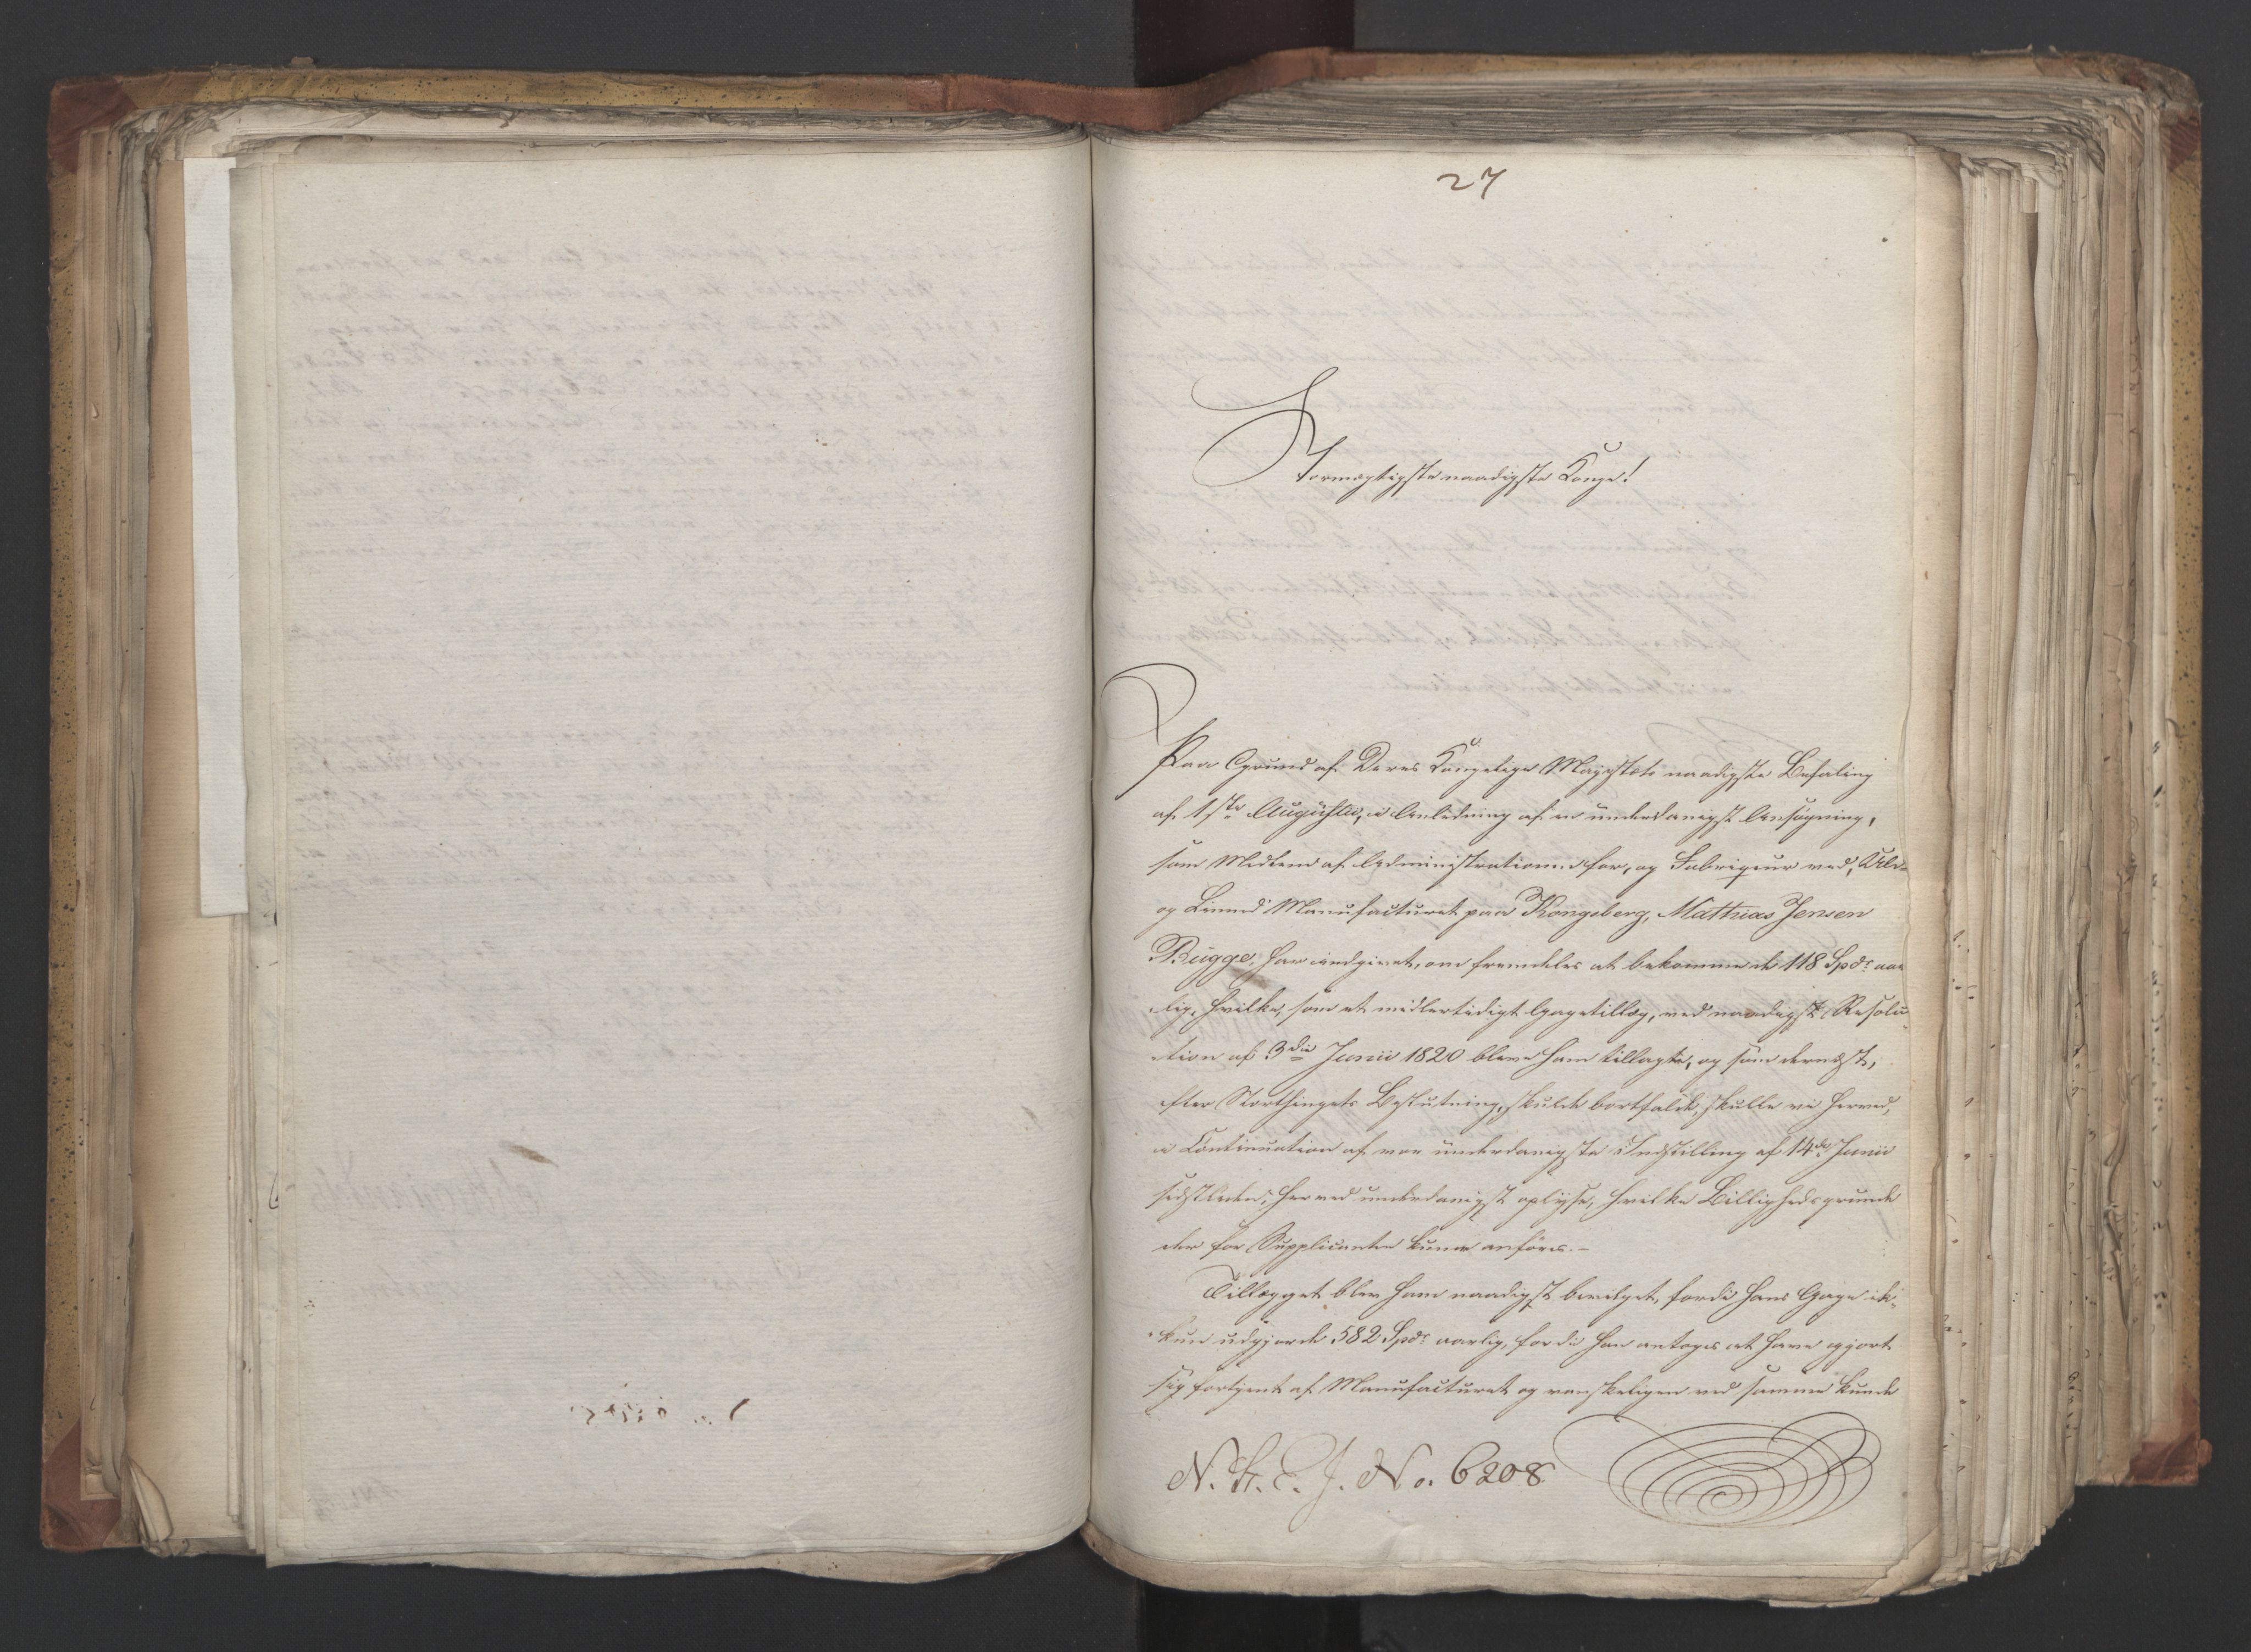 27
Stormægtigste naadigste Konge!
Paa Grund af Deres Kongelige Majestæts naadigste Befaling
af 1ste Augusti, i Anledning af en underdanigst Ansøgning,
som Medlem af Administrationen for, og Fabriqeur ved, Uld-
og Linned Manufacturet paa Kongsberg, Mathias Jensen
Bugge, har indgivet, om fremdeles at bekomme de 118 Spdr aar
lig, hvilke, som et midlertidigt Gagetillæg, ved naadigst Resolu
tion af 3die Junii 1820 bleve ham tillagte, og som dernæst,
efter Storthingets Beslutning, skulde bortfalde, skulle vi herved,
i Continuation af vor underdanigste Indstilling af 14de Junii
sidstleden, herved underdanigst oplyse, hvilke Billighedsgrunde
der for Supplicanten kunne anføres.-
Tillægget blev ham naadigst bevilget, fordi hans Gage ik-
kun udgjorde 582 Spdr aarlig, fordi han antoges at have gjort
sig fortjent af Manufacturet og vanskeligen ved samme kunde
N. K. C. J. No. 6208